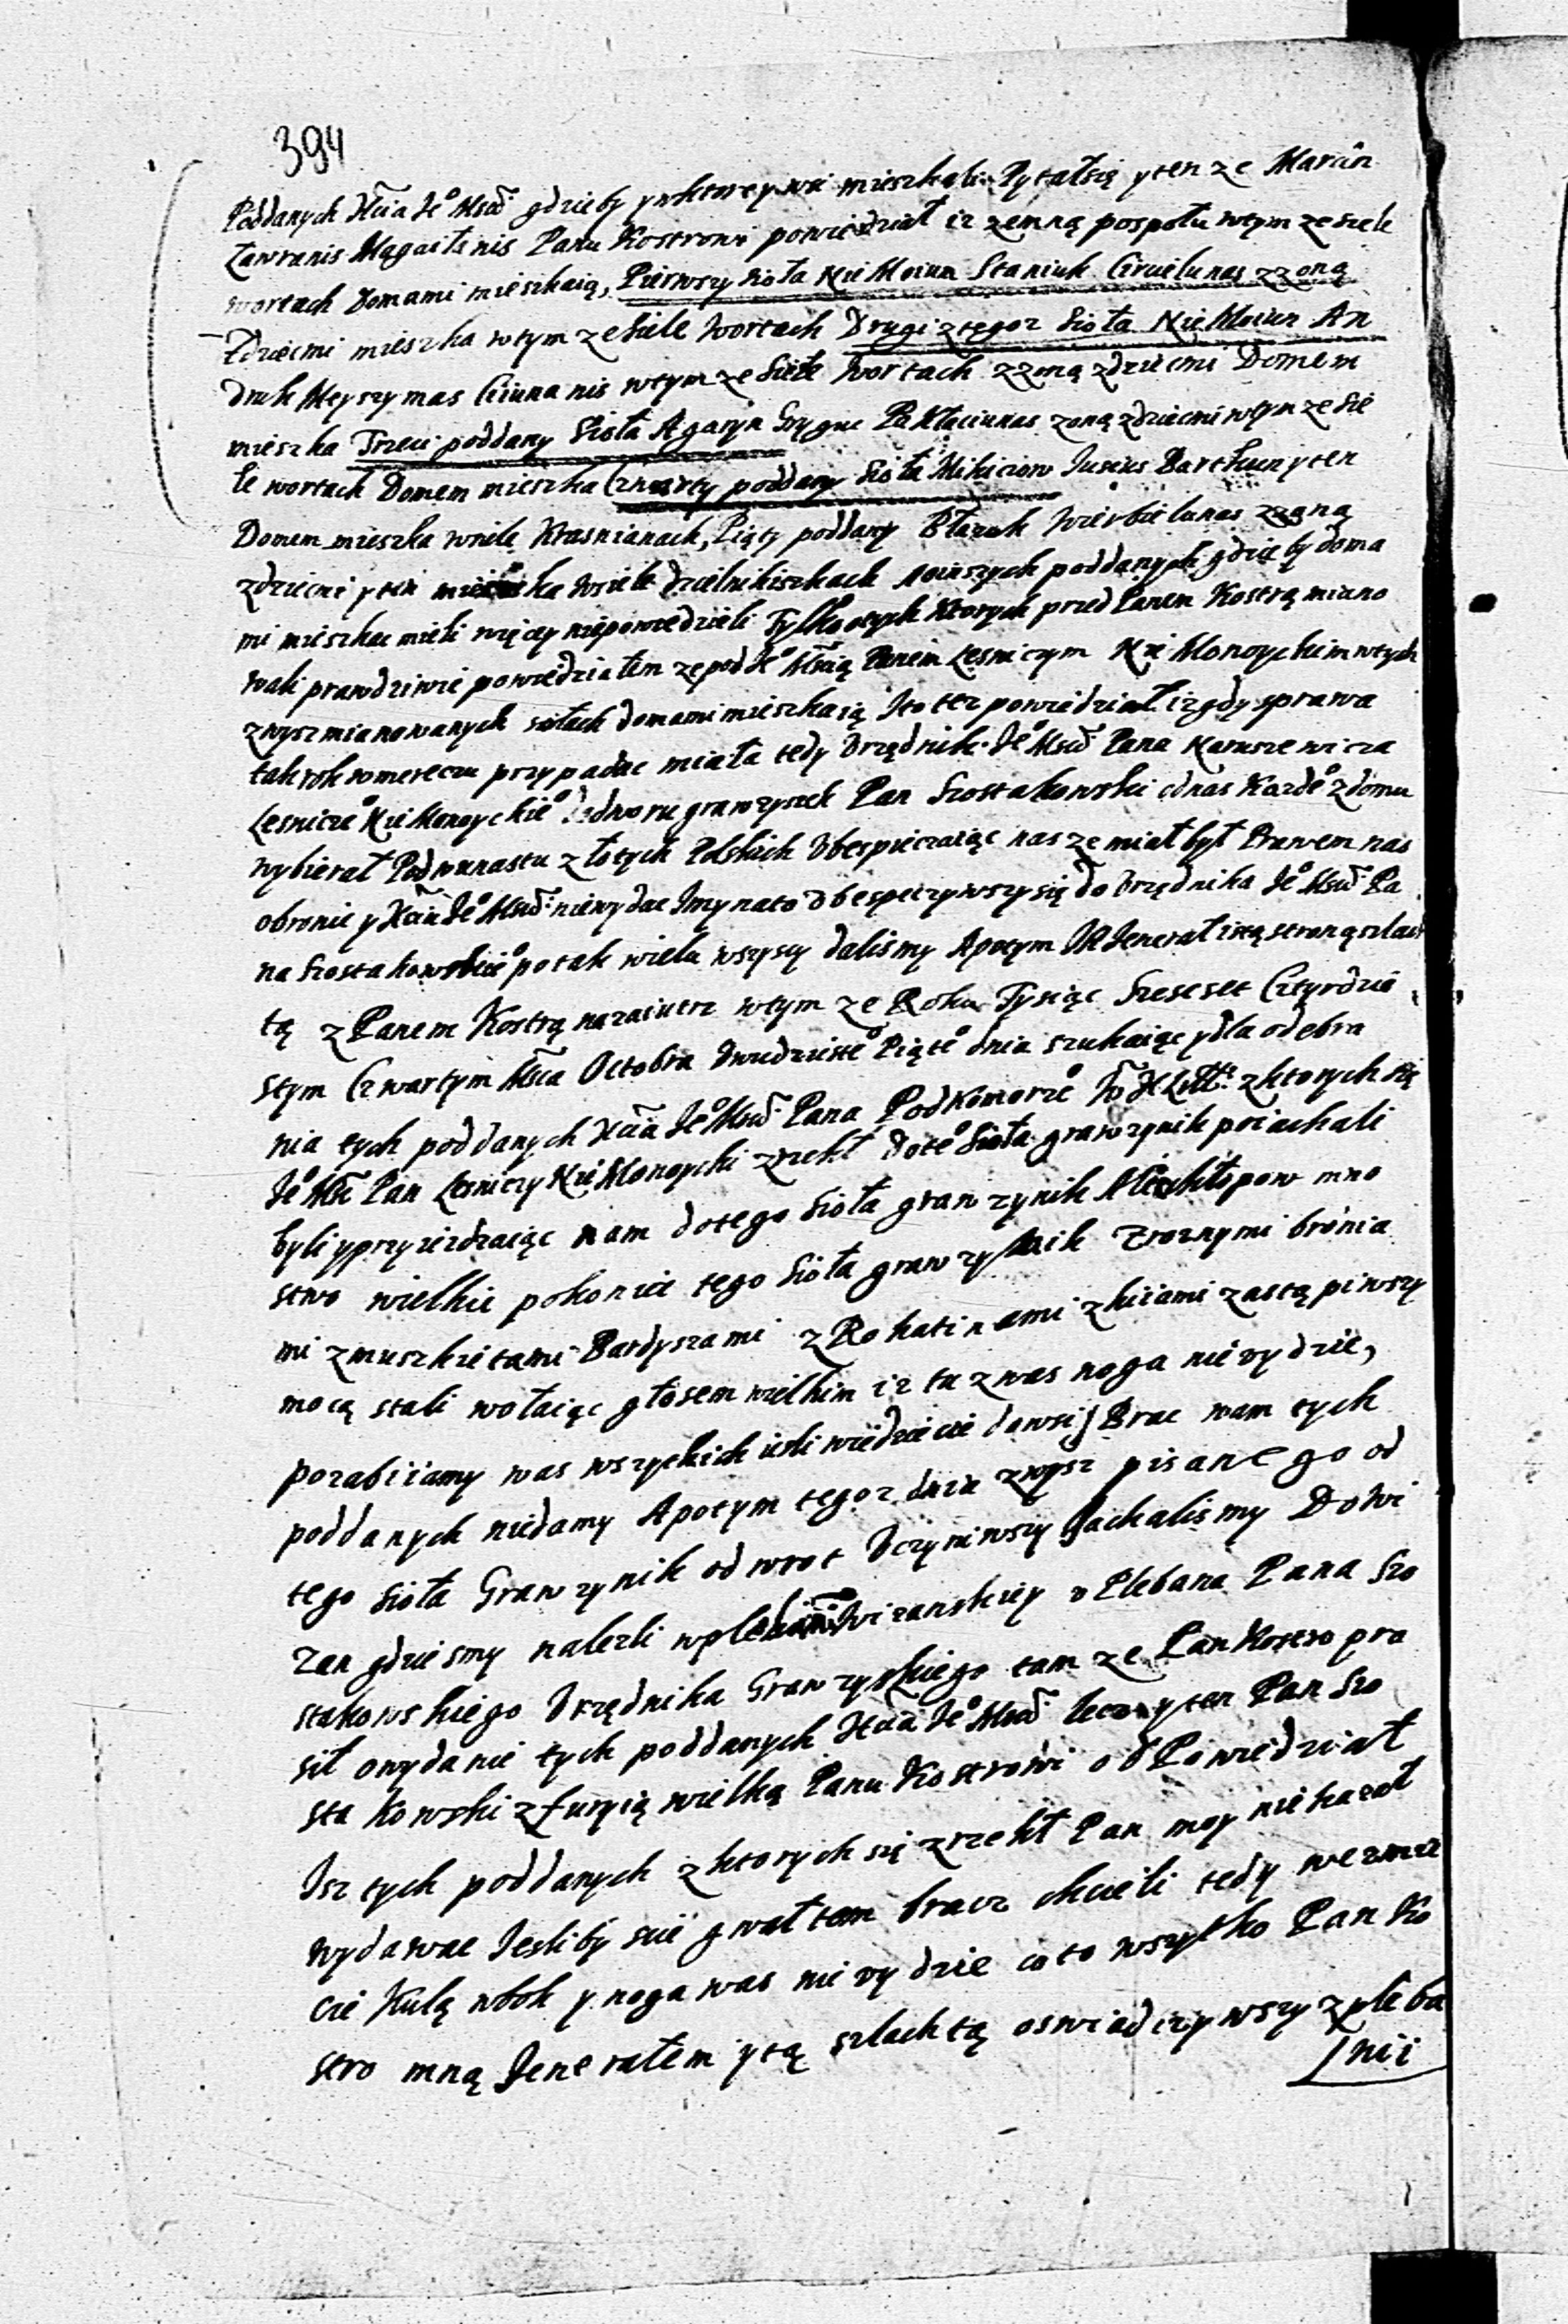 394
Poddanych Xcia Jeº Mści gdzieby y wktorey wsi mieszkali Pytał się y ten ze Marcin
Ławranis Magaitinis Panu Kostrowi powiedział iz zemną pospołu wtym ze siele
wortach Domami mieszkaią, Pierwszy sioła Niemoiun Staniuk Cirulunas zzoną
Zdziecmi mieszka wtym ze siele Wortach Drugi ztegoz sioła Niemoiun An
druk Meyszymas Ciunanis wtym ze siele Wortach zzoną zdziecmi Domem
mieszka Trzeci poddany Sioła Agaryn Grygue Paktaciunas zoną zdziecmi wtym ze sie
le wortach Domem mieszka Czwarty poddany sioła Mikiciow Jusius Barthun y ten
Domem mieszka wsiele Krasnianach, Piąty poddany Błazuk Wierbielunas zoną
zdziecmi y ten mieszka wsiele dzielnikiszkach Aoinszych poddanych gdzieby doma
mi mieszkac mieli więcey niepowiedzieli Tylko otych ktorych przed Panem Kostrą miano
wali prawdziwie powiedziałem ze pod Jeº Mścią Panem Lesniczym Niemonoyckim wtych
zwysz mianowanych siołach domami mieszkaią Ito tez powiedział iz gdy sprawa
tak rok wmereczu przypadac miała tedy Urzędnik Jeº Mści Pana Karuszewicza
Lesniczeº Niemonoyckieº Dodworu grawzyszek Pan Szostakowski odnas Kazdeº zdomu
wybierał Podwunastu złotych Polskich Ubespieczaiąc nas ze miał był Prawem nas
obronic y Xciu Jeº Mści niewydac Imynato Ubespeczywszy się do Urzędnika Jeº Mści Pa
na Szostakowskieº potak wielu wszyscy dalismy Apotym JA Jenerał ztą stroną szlach
tą z Panem Kostrą nazaiutrz wtym ze Roku Tysiąc Szescset Cztyrdzie
stym Czwartym Msca Octobra Dwudziesteº Piąteº dnia szukaiąc y dla odebra
nia tych poddanych Xcia Jeº Mści Pana Podkomorzeº ktorych się
Jeº Mść Pan Lesniczy Niemonoycki zrzekł doteº Sioła grawzynik poiachali
byli y przyiezdzaiąc nam dotego Sioła grawzynik Aliczchłopow mno
stwo wielkie pokonice tego Sioła grawzynik zroznymi bronia
mi zmuszkietami Bardyszami z Rohatinami zkiiami zastąpiwszy
mocą stali wołaiąc głosem wielkim iz tu zwas noga nie vydzie,
pozabiiamy was wszytkich iesli wiedziecie dowsi Brac wam tych
poddanych niedamy Apotym tegoz dnia zwysz pisanego od
tego sioła Grawzynik odwrot Uczyniwszy Jachalismy Dowi
zan gdziesmy nalezli wplebanii Wizanskiey v Plebana Pana Szo
stakowskiego Urzędnika Grawzyskiego tam ze Pan Kostro pro
sił owydanie tych poddanych Xcia Jeº Mści lecz y ten Pan Szo
stakowski zfuryią wielką Panu Kostrowi odPowiedział
Isz tych poddanych zktorych się zrzekł Pan moy niekazał
wydawac Jesliby scie gwałtem bracz chcieli tedy wezmie
cie Kulą wbok y noga was nie vydzie coto wszytko Pan Ko
stro mną Jenerałem ytą szlachtą oswiadczywszy zpleba
nii